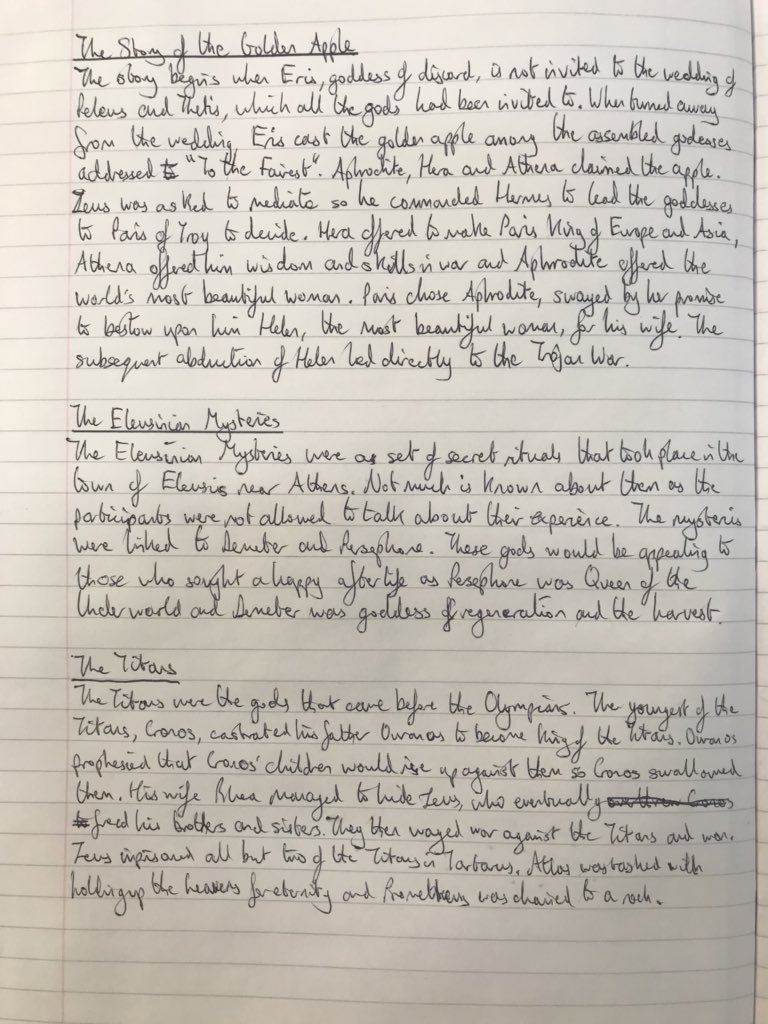 The Story of the Golden Apple
The story begins when Eris, goddess of discord, is not invited to the wedding of
Peleus and Thetis, which all the gods had been invited to. When turned away
from the wedding, Eris cast the golden apple among the assembled godesses
addressed to "To the Fairest". Aphrodite, Hera and Athena claimed the apple.
Zeus was asked to mediate so he commanded Hermes to lead the goddesses
to Paris of Troy to decide. Hera offered to make Paris King of Europe and Asia,
Athena offered him wisdom and skills in war and Aphrodite offered the
world's most beautiful woman. Paris chose Aphrodite, swayed by her promise
to bestow upon him Helen, the most beautiful woman, for his wife. The
subsequent abduction of Helen led directly to the Trojan War.
The Eleusinian Mysteries
The Eleusinian Mysteries were as set of secret rituals that took place in the
town of Eleusis near Athens. Not much is known about them as the
participants were not allowed to talk about their experience. The mysteris
were linked to Demeter and Persephone. These gods would be appealing to
those who sought a happy afterlife as Persephone was Queen of the
Underworld and Demeter was goddess of regeneration and the harvest.
The Titans
The Titans were the gods that came before the Olympians. The youngest of the
Titans, Cronos, castrated his father Ouranos to become King of the Titans. Ouranos
prophesied that Cronos' children would rise up against them so Cronos swallowed
them. His wife Rhea managed to hide Zeus, who eventually overthrew Cronos
to freed his brothers and sisters. They then waged war against the Titans and won.
Zeus imprisoned all but two of the Titans in Tartarus. Atlas was tasked with
holding up the heavens for eternity and Prometheus was chained to a rock.